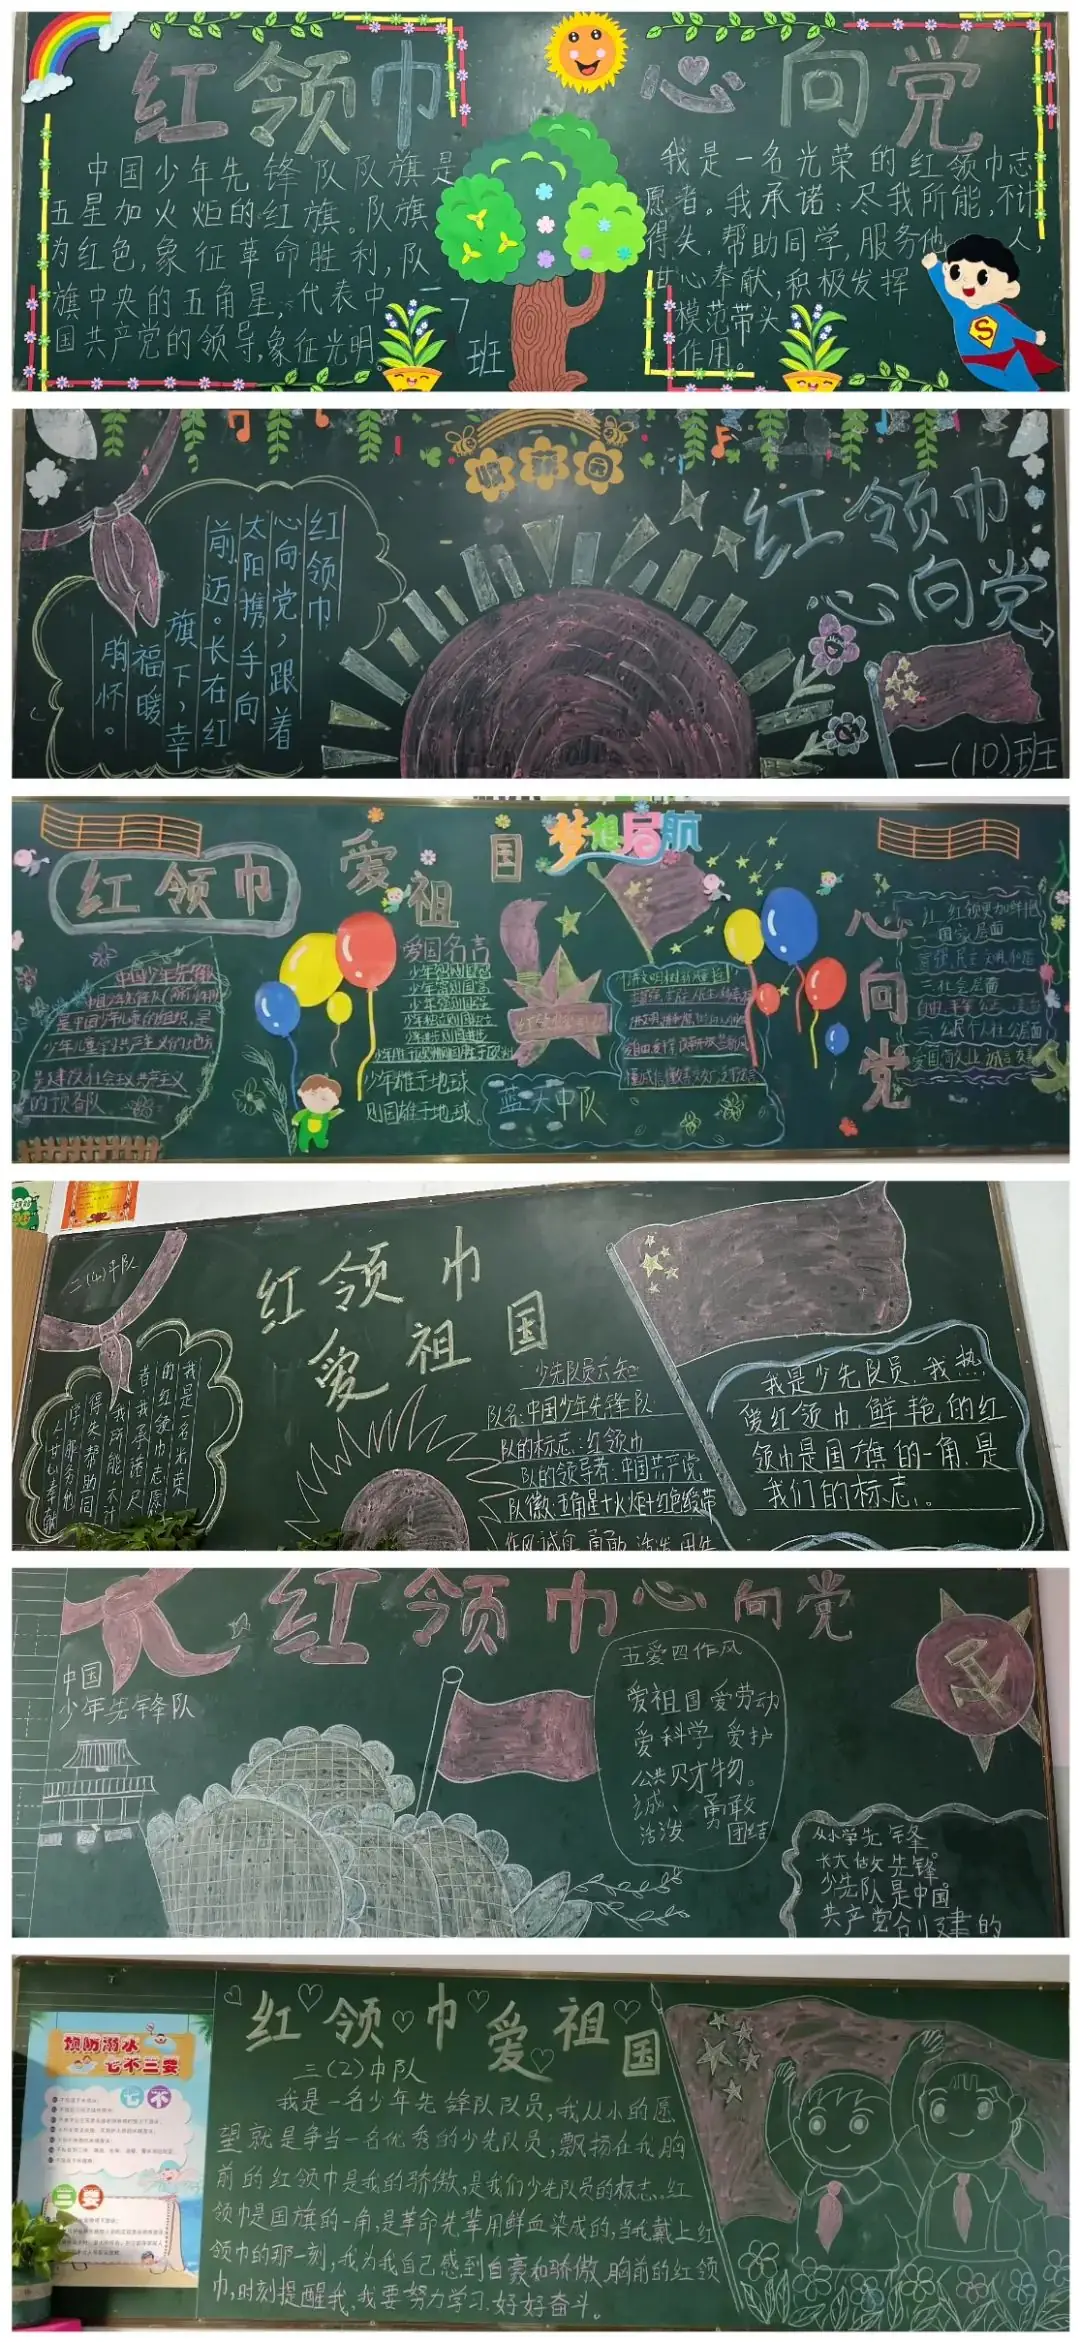 红领巾 心向党
中国少年先锋队队旗是
五星加火炬的红旗。队旗
为红色,象征革命胜利,队
旗中央的五角星,代表中
国共产党的领导,象征光明
一7
班
我是一名光荣的红领巾志
愿者。我承诺:尽我所能,不计
得失,帮助同学,服务他人,
甘心奉献,积极发挥
模范带头
作用。
收获园
红领巾
心向党,跟着
太阳携手向
前迈。长在红
旗下,幸
福暖
胸怀。
红领巾
心向党
一(10)班
红领巾
爱祖国
梦想启航
心向党
是中国少年儿童的组织,是
是建设社会主义共产主义
的预备队
爱国名言
少年雄于地球
则国雄于地球。
蓝天中队
国家层面
富强民主文明和谐
三社会层面
二(4)中队
红领巾
爱祖国
我是一名光荣
的红领巾志愿
者,我承诺尽
我所能不计
得失帮助同
学服务他
人甘心奉献
少先队员六知
队名:中国少年先锋队
队的标志:红领巾
队的领导者:中国共产党
队徽:五角星+火炬+红色绶带
作风:诚实 勇敢 活泼 团结
我是少先队员,我热
爱红领巾,鲜艳的红
领巾是国旗的一角,是
我们的标志。
红领巾心向党
中国
少年先锋队
五爱四作风
爱祖国 爱劳动
爱科学 爱护
公共财物。
诚、勇敢
活泼 团结
从小学先锋
长大做先锋。
少先队是中国
共产党创建的
预防溺水
七不三要
七不
三要
红领巾爱祖国
三(2)中队
我是一名少年先锋队队员,我从小的愿
望就是争当一名优秀的少先队员,飘扬在我胸
前的红领巾是我的骄傲,是我们少先队员的标志..红
领巾是国旗的一角,是革命先辈用鲜血染成的,当我戴上红
领巾的那一刻,我为我自己感到自豪和骄傲,胸前的红领
巾,时刻提醒我,我要努力学习,好好奋斗。